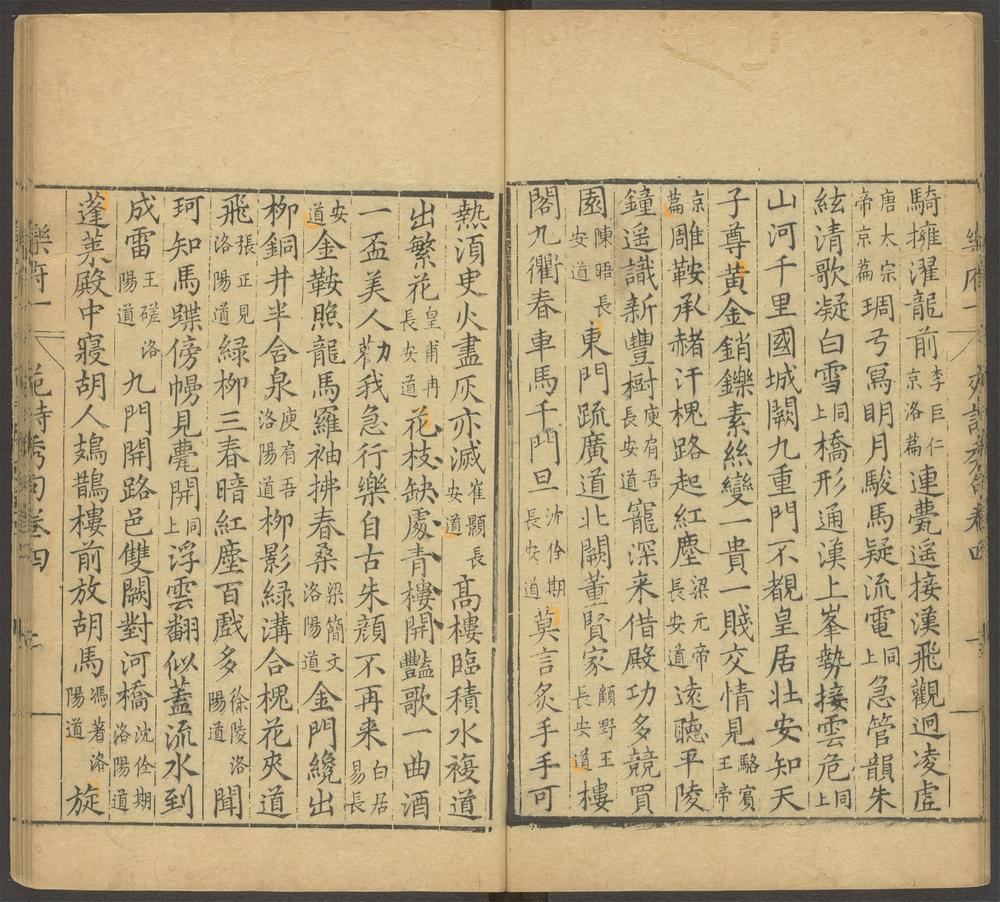 騎擁濯龍前李巨仁京洛篇連甍遥接漢飛觀迥凌虛
唐太宗帝京篇琱弓寫明月駿馬疑流電同上急管韻朱
絃清歌凝白雪同上橋形通漢上峯勢接雲危同上
山河千里國城闕九重門不覩皇居壯安知天
子尊黄金銷鑠素絲變一貴一賤交情見駱賓王帝
京篇雕鞍承赭汗槐路起紅塵梁元帝長安道遠聽平陵
鐘遥識新豐樹庾有吾長安道寵深来借殿功多競買
園陳晤長安道東門疏廣道北闕董賢家顧野王長安道樓
閣九衢春車馬千門旦沈佺期長安道莫言炙手手可
熱須臾火盡灰亦滅崔顥長安道高樓臨積水複道
出繁花皇甫冉長安道花枝缺處青樓開豔歌一曲酒
一盃美人勸我急行樂自古朱顔不再来白居易長
安道金鞍照龍馬羅袖拂春桑梁簡文洛陽道金門纔出
柳銅井半含泉庾有吾洛陽道柳影緑溝合槐花夾道
飛張正見洛陽道緑柳三春暗紅塵百戲多徐陵洛陽道聞
珂知馬蹀傍幰見甍開同上浮雲翻似蓋流水到
成雷王磋洛陽道九門開路邑雙闕對河橋沈佺期洛陽道
蓬莱殿中寢胡人鳷鵲樓前放胡馬馮著洛陽道旋
樂府一 詩秀句卷四